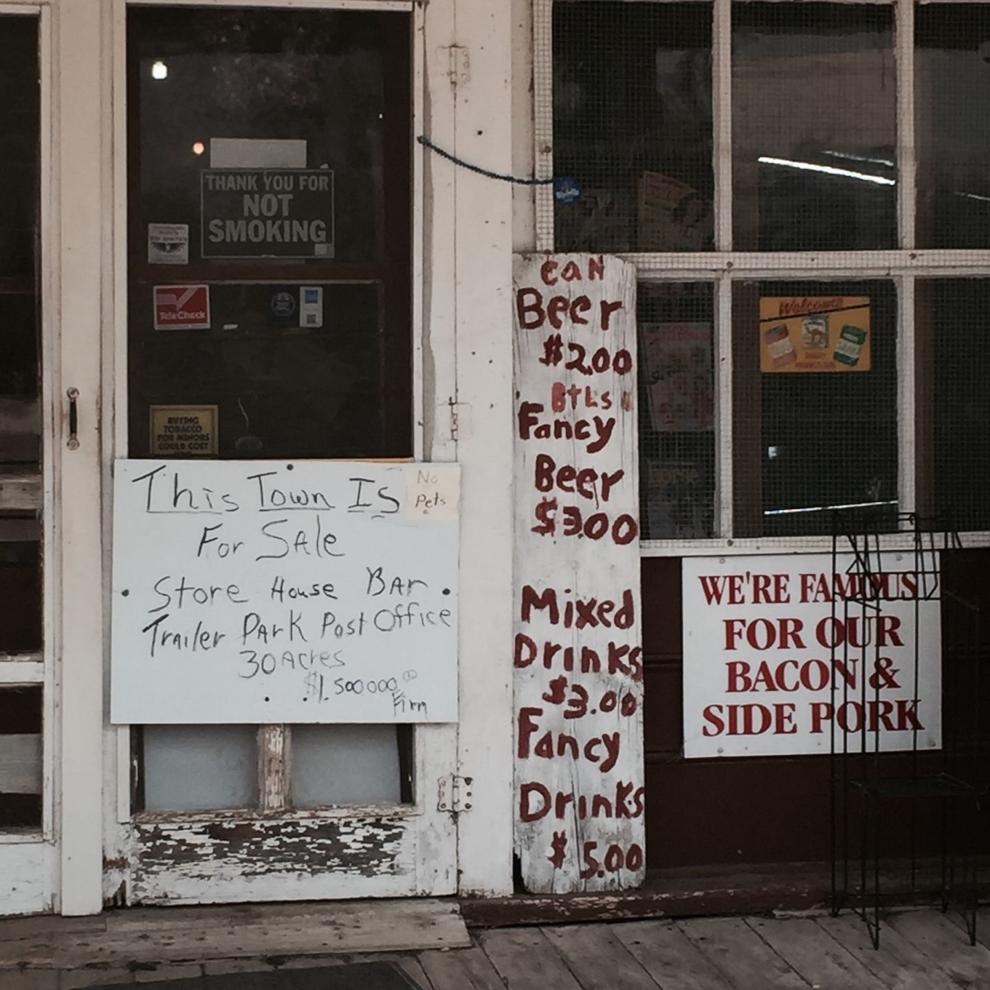 THANK YOU FOR
NOT
SMOKING
TeleCheck
BUYING
TOBACCO
FOR MINORS
COULD COST
This Town Is
For Sale
Store House Bar
Trailer Park Post Office
30 Acres
$1,500000.00
Firm
No
Pets
Can
Beer
$2.00
BTLs
Fancy
Beer
$3.00
Mixed
Drinks
$3.00
Fancy
Drinks
$5.00
Welcome
WE'RE FAMOUS
FOR OUR
BACON &
SIDE PORK